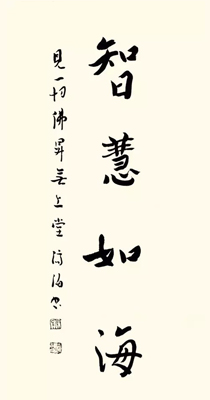 智慧如海
見一切佛昇無上堂